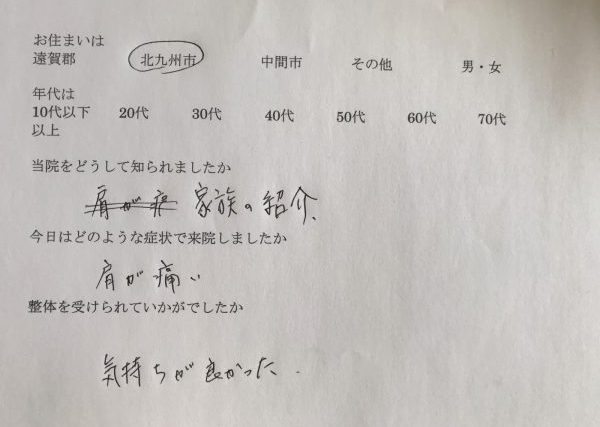 お住まいは
遠賀郡 北九州市 中間市 その他 男・女
年代は
10代以下 20代 30代 40代 50代 60代 70代
以上
当院をどうして知られましたか
肩が 家族の紹介、
今日はどのような症状で来院しましたか
肩が痛い
整体を受けられていかがでしたか
気持ちが良かった.